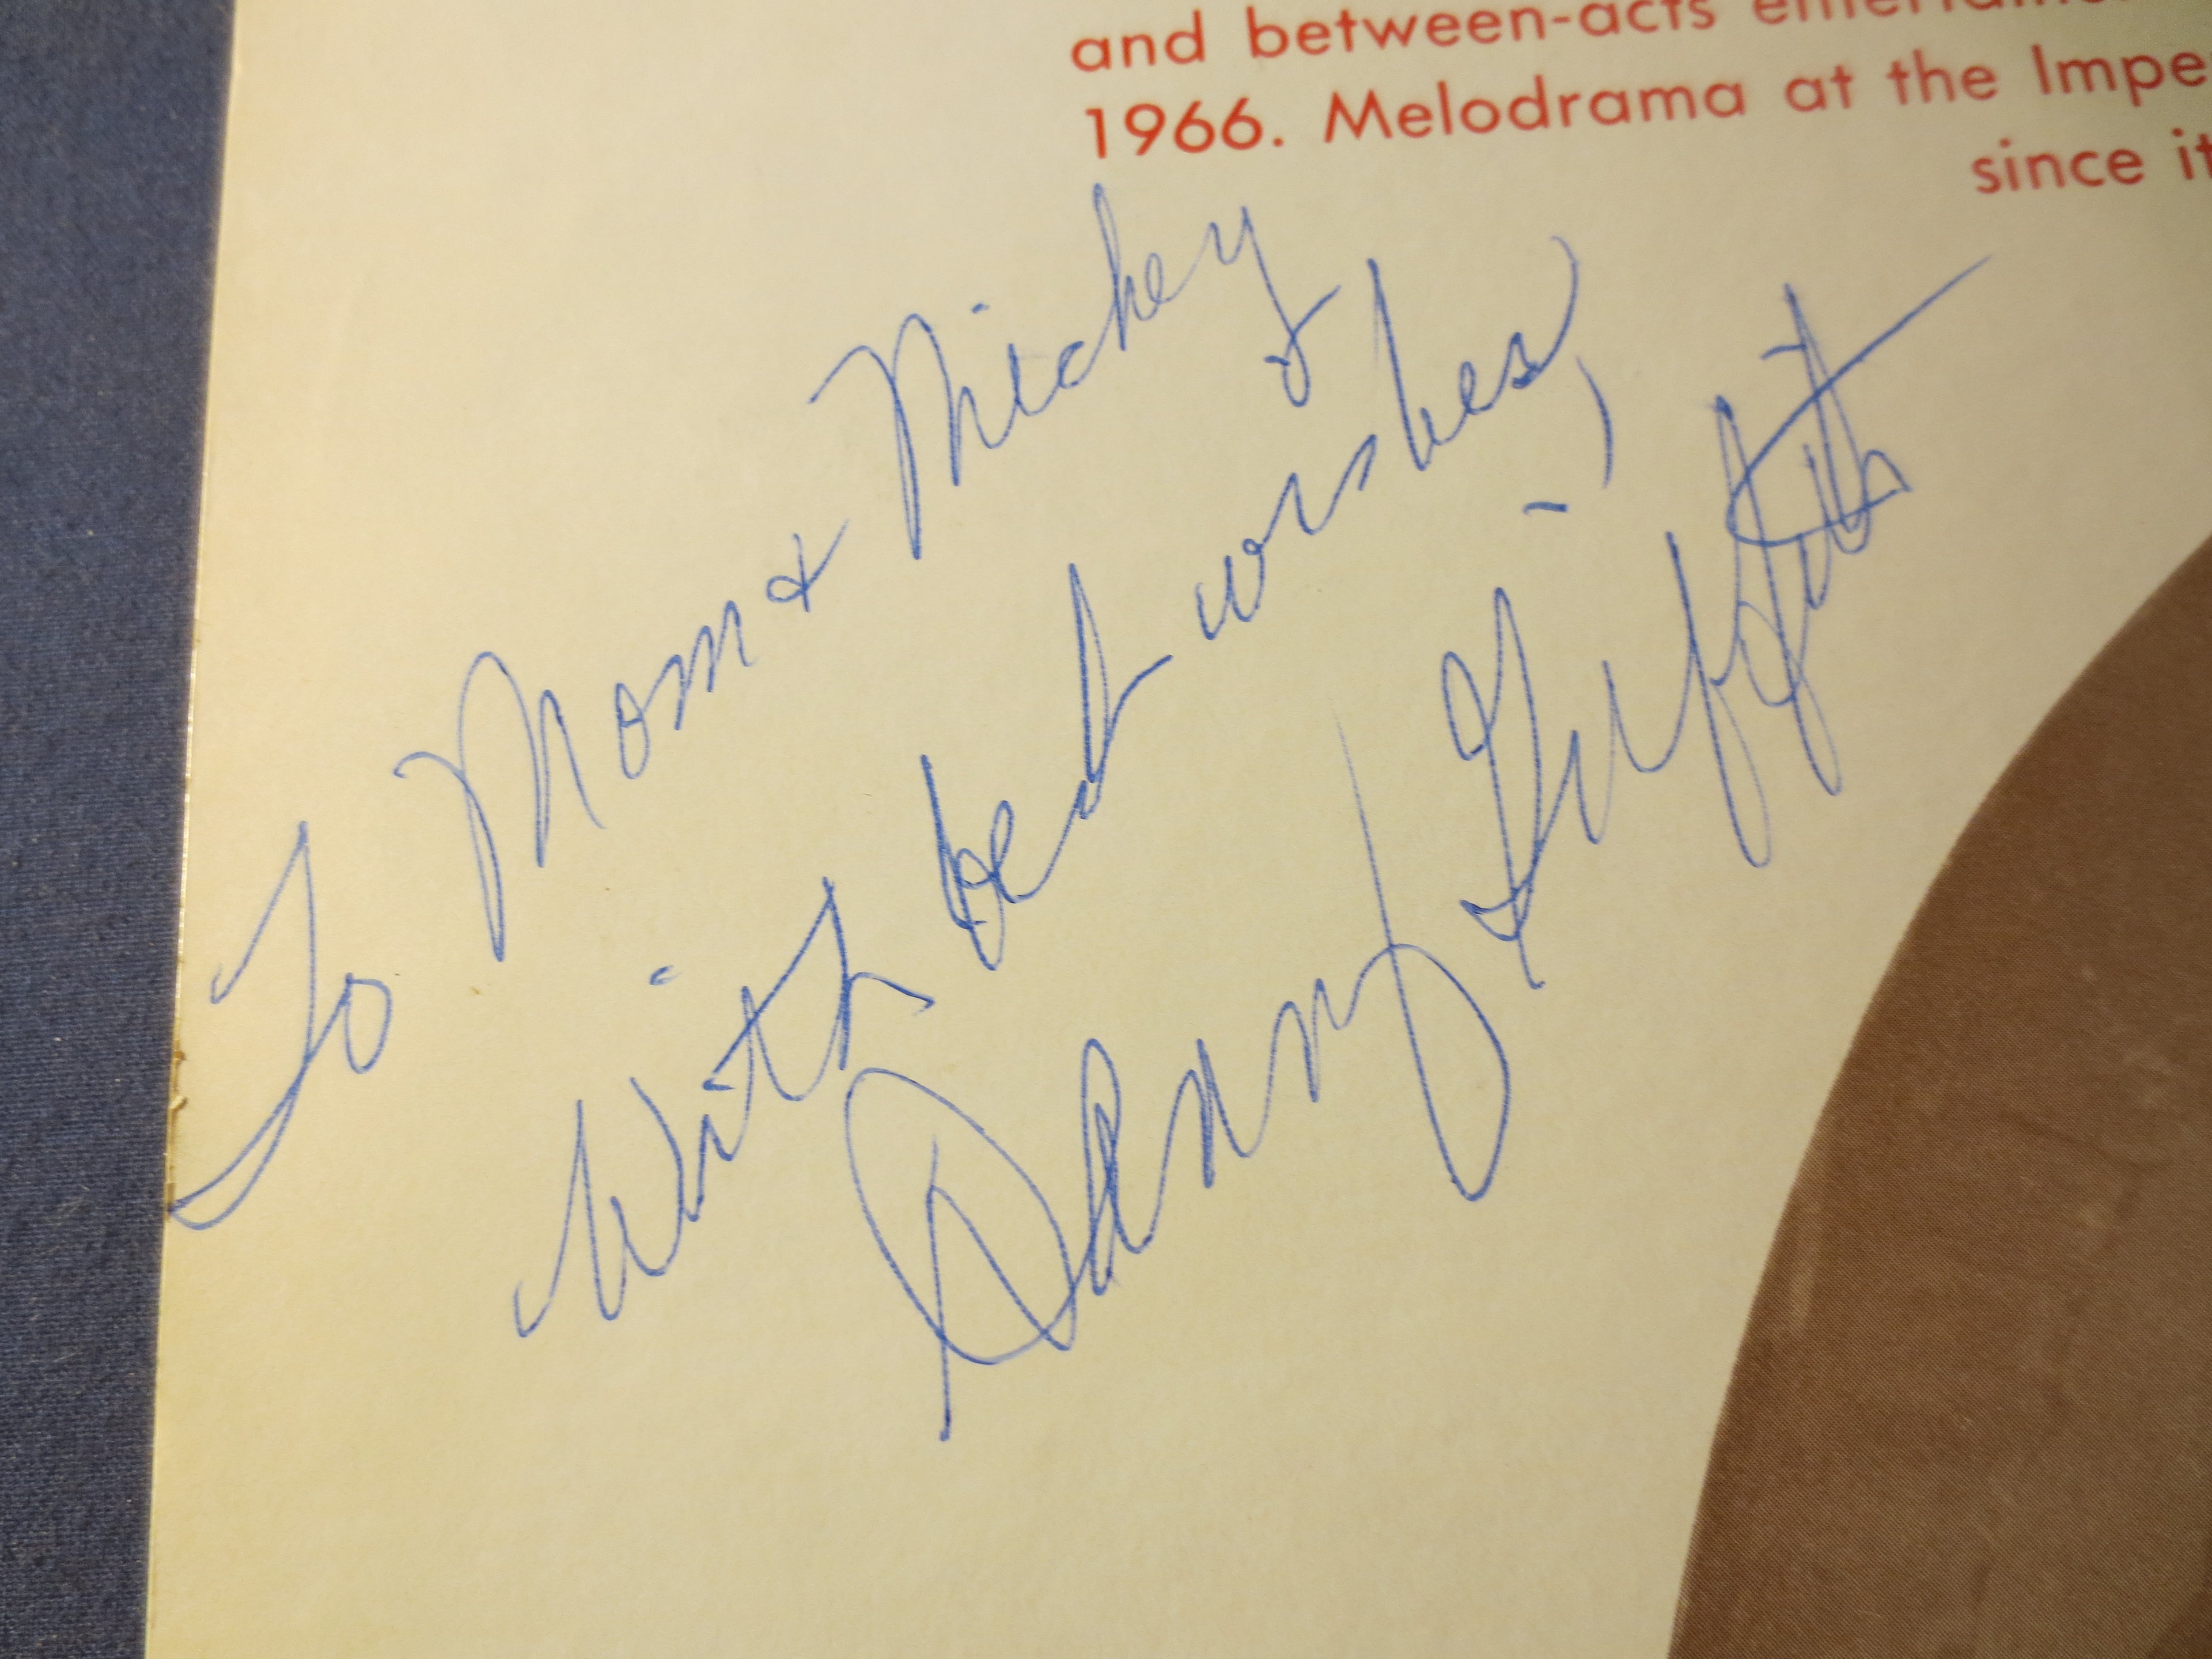 and between-acts
1966. Melodrama at the Impe
since it
To Mom & Mickey
With best wishes,
Danny Griffith